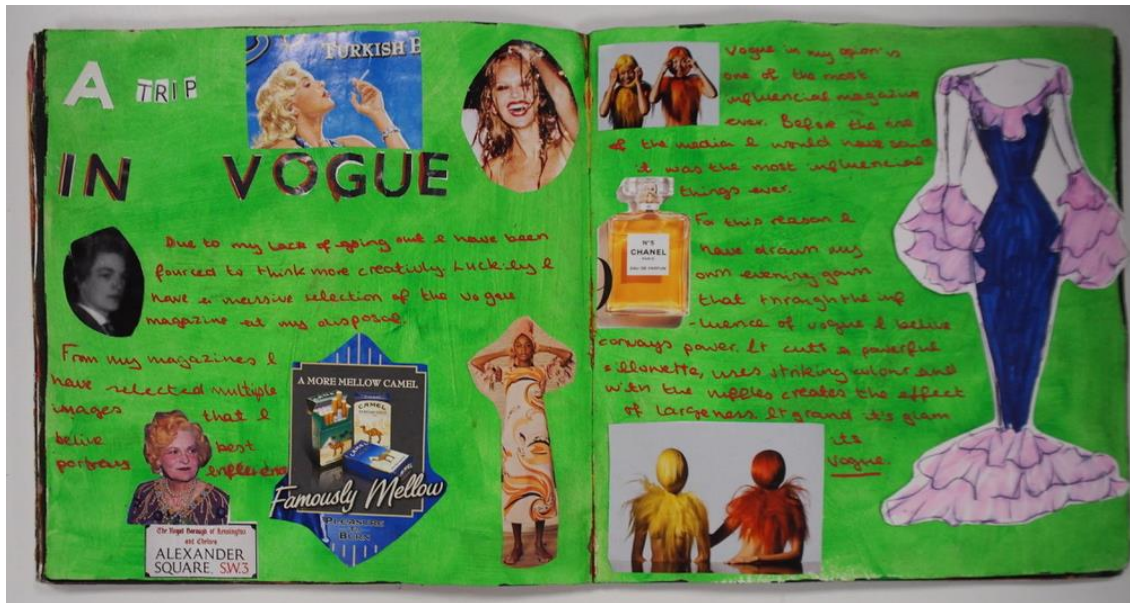 A TRIP
IN VOGUE
TURKISH B
Due to my lack of going out I have been
fourced to think more creativly. Luckily I
have a massive selection of the vogue
magazine at my disposal.
From my magazines I
have selected multiple
images that I
belive best
portrays
A MORE MELLOW CAMEL
CAMEL
CAMEL
Famously Mellow
PLEASURE
TO
BURN
The Royal Borough of Kensington
and Chelsea
ALEXANDER
SQUARE. S.W.3
Vogue in my opion is
one of the most
influencial magazine
ever. Before the rise
of the media I would have said
it was the most influencial
things ever.
N°5
CHANEL
PARIS
EAU DE PARFUM
For this reason I
have drawn my
own evening gown
that through the inf
-luence of vogue I belive
convays power. It cuts a powerful
sillouette, uses striking colour and
with the ruffles creates the effect
of largeness. It grand it's glam
its
vogue.